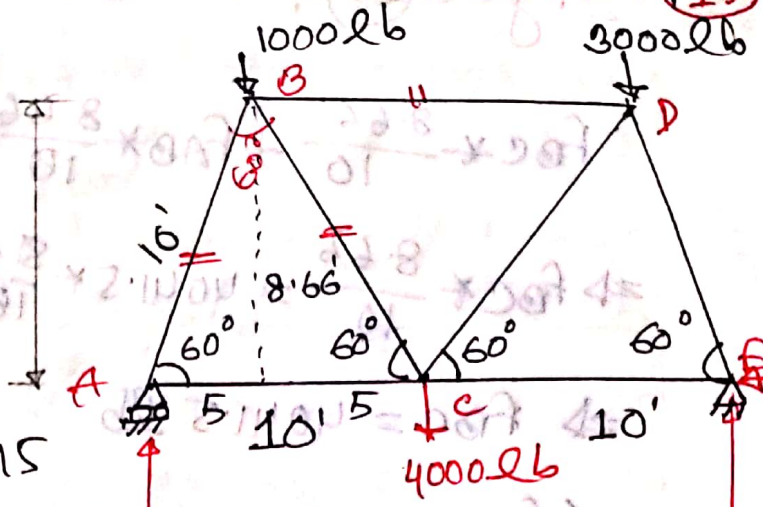 1000lb
3000lb
B
D
60°
10'
8.66'
60°
60°
60°
60°
A
5
5
C
10'
10'
4000lb
15